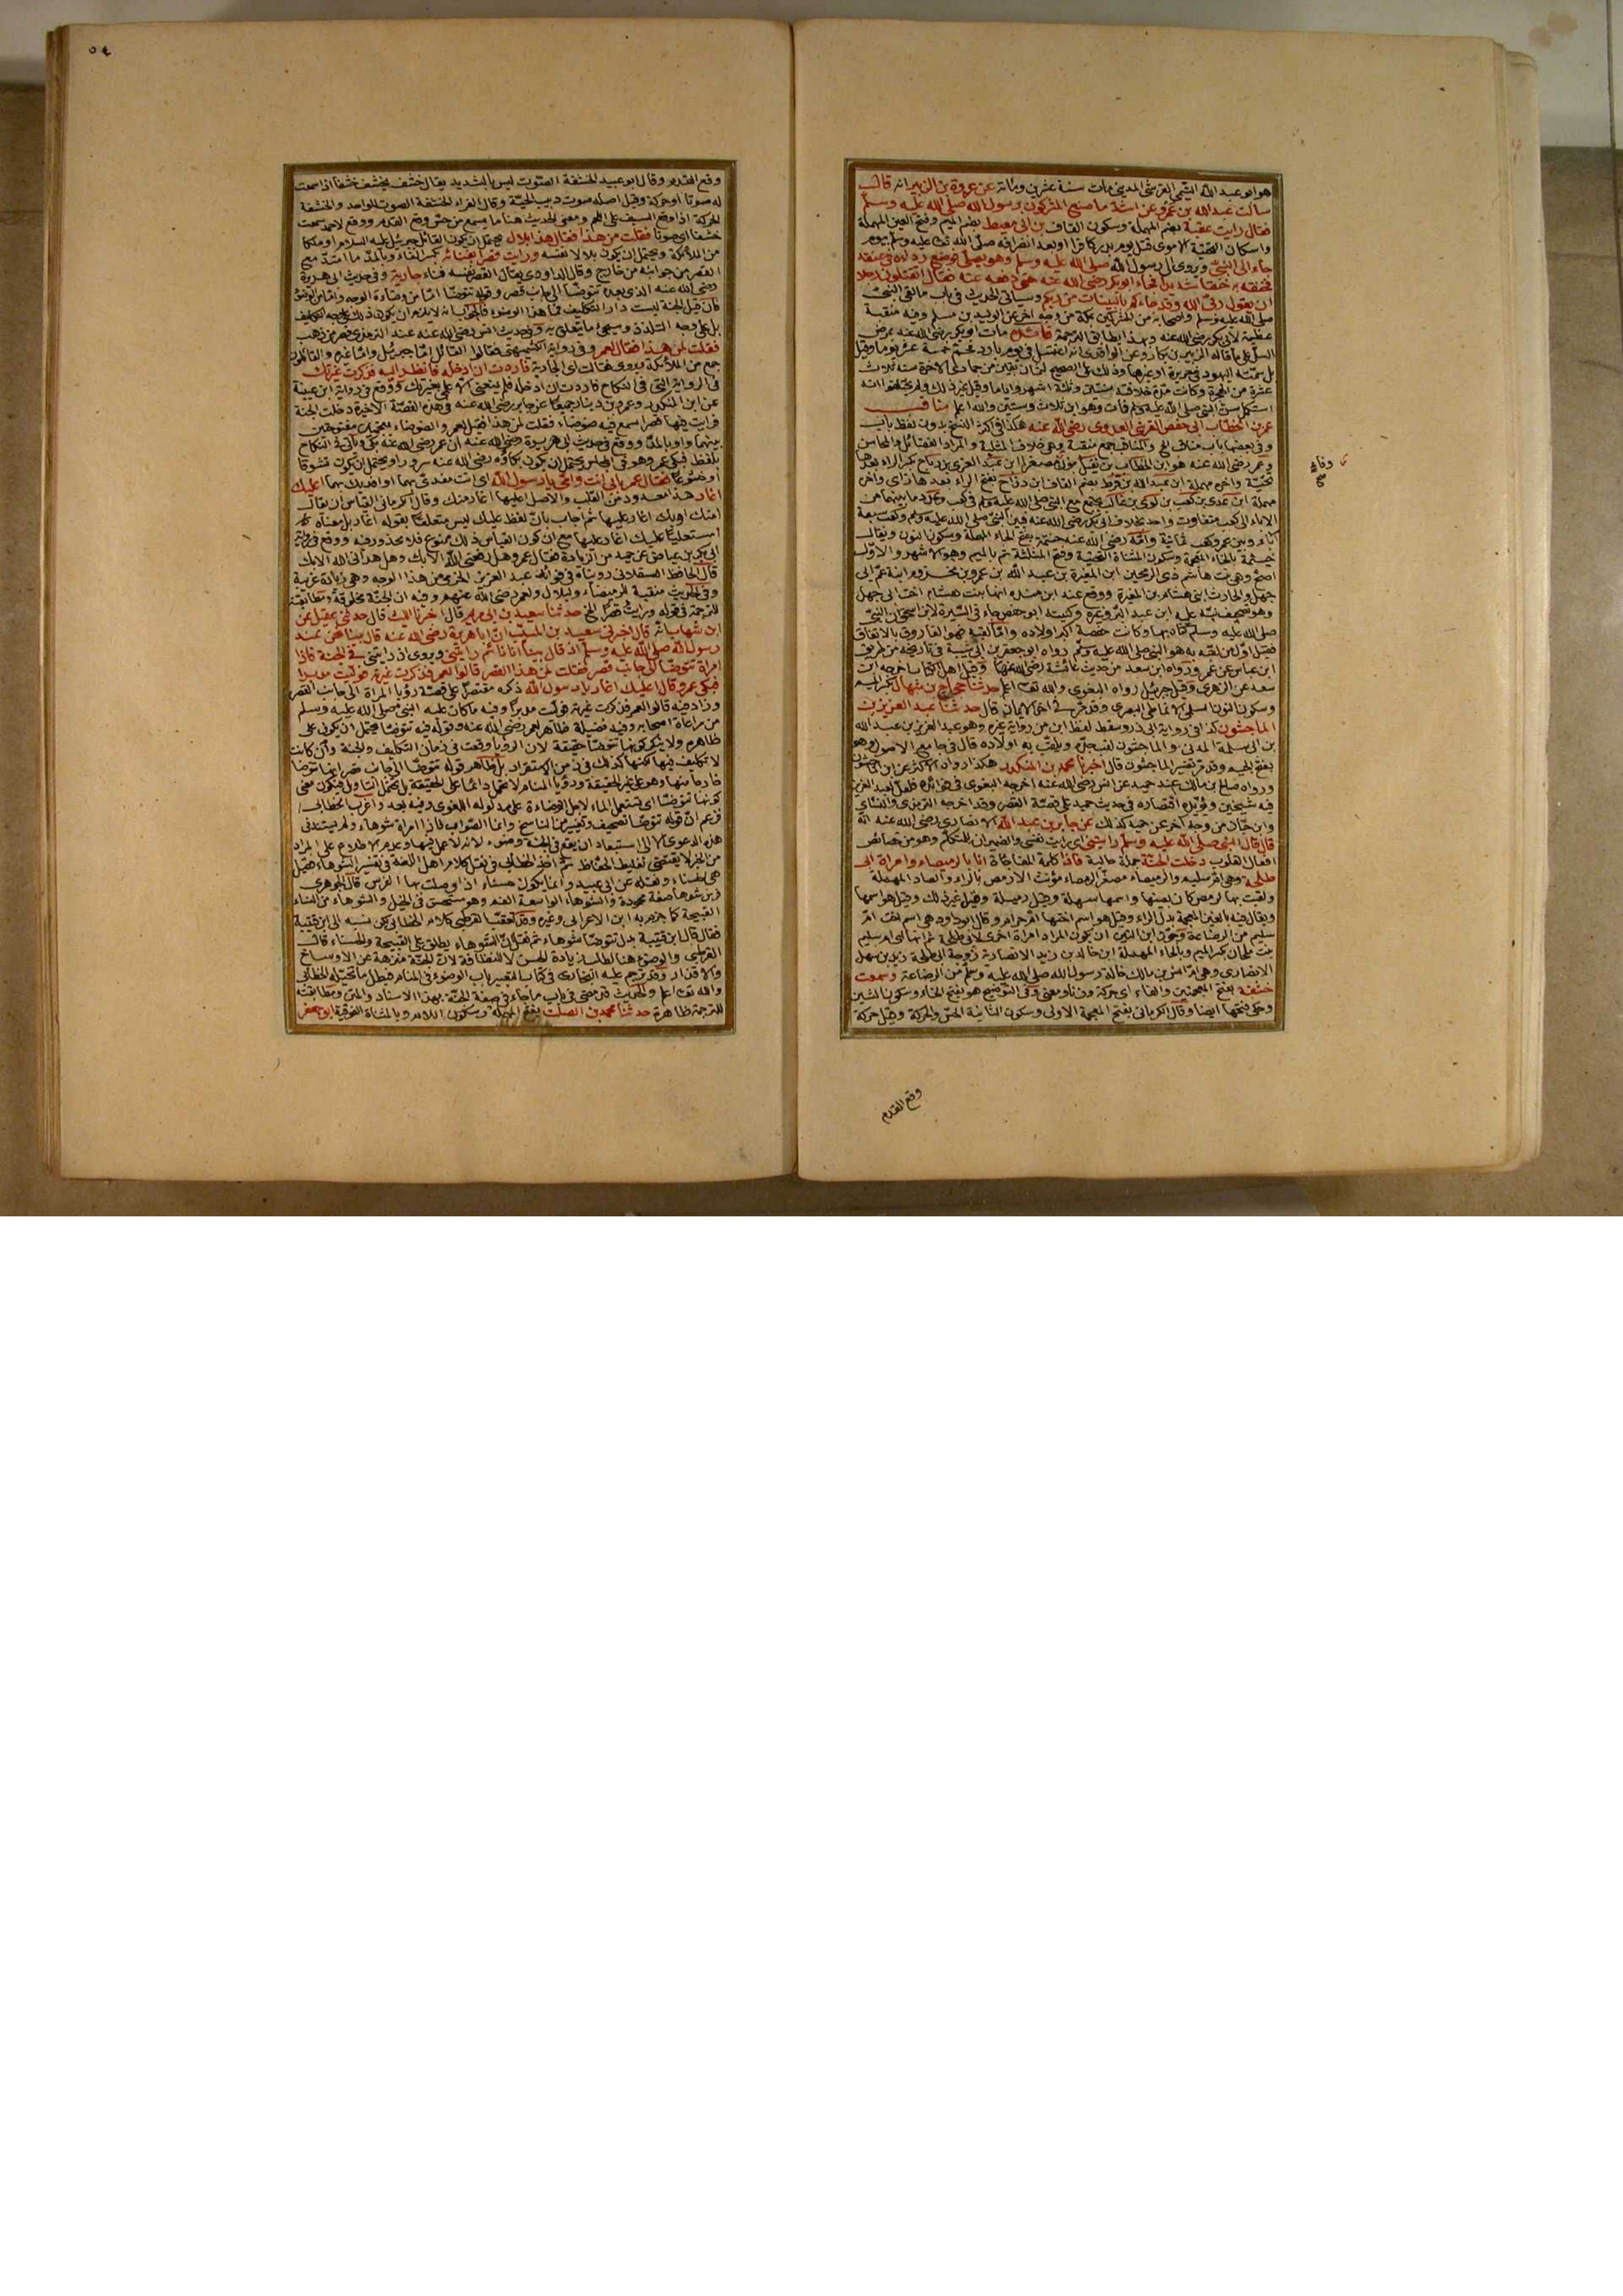 هو ابو عبد الله التيمي القرشي المديني مات سنة عشرين ومائة عن عروة بن الزبير انه قال
سألت عبد الله بن عمرو عن اشد ما صنع المشركون برسول الله صلى الله عليه وسلم
فقال رايت عقبة بضم المهملة وسكون القاف بن ابي معيط بضم الميم وفتح العين المهملة
واسكان التحتية الاموي قتل يوم بدر كافرا او بعد انصرافه صلى الله تعالى عليه وسلم بيوم
جاء الى النبي ويروى الى رسول الله صلى الله عليه وسلم وهو يصلي فوضع رداءه في عنقه
فخنقه به خنقا شديدا فجاء ابو بكر رضي الله عنه حتى دفعه عنه فقال اتقتلون رجلا
ان يقول ربي الله وقد جاءكم بالبينات من ربكم وسياتي الحديث في باب ما لقي النبي
صلى الله عليه وسلم واصحابه من المشركين بمكة من وجه اخر عن الوليد بن مسلم وفيه منقبة
عظيمة لابي بكر رضي الله عنه وبهذا يطابق الترجمة مات ابو بكر رضي الله عنه بمرض
السل على ما قاله الزبير بن بكار وعن الواقدي انه اغتسل في يوم بارد فحم خمسة عشر يوما وقيل
بل سمته اليهود في حريرة او غيرها وذلك على الصحيح لثمان بقين من جمادى الاخرة سنة ثلاث
عشرة من الهجرة وكانت مدة خلافته سنتين وثلثة اشهر واياما وقيل غير ذلك ولم يختلفوا انه
استكمل سن النبي صلى الله عليه وسلم فمات وهو ابن ثلاث وستين والله اعلم مناقب
عمر بن الخطاب ابي حفص القرشي العدوي رضي الله عنه هكذا في اكثر النسخ بدون لفظ باب
وفي بعضها باب مناقب الخ والمناقب جمع منقبة وهي خلاف المثلبة والمراد الفضائل والمحاسن
وعمر رضي الله عنه هو ابن الخطاب بن نفيل مصغرا ابن عبد العزى بن رياح بكسر الراء بعدها
تحتية واخره مهملة ابن عبد الله بن قرط بضم القاف ابن رزاح بفتح الراء بعدها زاي واخره
مهملة ابن عدي بن كعب بن لؤي بن غالب يجتمع مع النبي صلى الله عليه وسلم في كعب وعدد ما بينهما من
الاباء الى كعب متفاوت واحد بخلاف ابي بكر رضي الله عنه فبين النبي صلى الله عليه وسلم وكعب سبعة
اباء وبين عمر وكعب ثمانية وامه رضي الله عنه حنتمة بفتح الحاء المهملة وسكون النون ويقال
خيثمة بالخاء المعجمة وسكون المثناة التحتية وفتح المثلثة ثم بالميم وهو الاشهر والاول
اصح وهي بنت هاشم ذي الرمحين ابن المغيرة بن عبد الله بن عمرو بن مخزوم ابنة عم ابي
جهل والحارث ابني هشام بن المغيرة ووقع عند ابن منده انها بنت هشام اخت ابي جهل
وهو تصحيف نبه عليه ابن عبد البر وغيره وكنيته ابو حفص جاء في السيرة لابن اسحق ان النبي
صلى الله عليه وسلم كناه بها وكانت حفصة اكبر اولاده واما لقبه فهو الفاروق بالاتفاق
فقيل اول من لقبه به هو النبي صلى الله عليه وسلم رواه ابو جعفر بن ابي شيبة في تاريخه من طريق
ابن عباس عن عمر ورواه ابن سعد من حديث عائشة رضي الله عنها وقيل اهل الكتاب اخرجه ابن
سعد عن الزهري وقيل جبريل رواه البغوي والله تعالى اعلم حدثنا حجاج بن منهال بكسر الميم
وسكون النون السلمي الانماطي البصري وقد مر في اخر الايمان قال حدثنا عبد العزيز بن
الماجشون كذا في رواية ابي ذر وسقط لفظ ابن من رواية غيره وهو عبد العزيز بن عبد الله
بن ابي سلمة المدني والماجشون لقب جده ويلقب به اولاده قال في جامع الاصول وهو
بفتح الجيم وقد مر تفسير الماجشون قال اخبرنا محمد بن المنكدر هكذا رواه الاكثر عن ابن الماجشون
ورواه صالح بن مالك عنه عن حميد عن انس رضي الله عنه اخرجه البغوي في فوائده فلعل لعبد العزيز
فيه شيخين ويؤيده اقتصاره في حديث حميد على قصة القصر وقد اخرجه الترمذي والنسائي
وابن حبان من وجه اخر عن حميد كذلك عن جابر بن عبد الله الانصاري رضي الله عنه انه
قال قال النبي صلى الله عليه وسلم رايتني اي رايت نفسي والضميران للمتكلم وهو من خصائص
افعال القلوب دخلت الجنة جملة حالية فاذا كلمة المفاجاة انا بالرميصاء وامراة ابي
طلحة وهي ام سليم والرميصاء مصغر الرمصاء مؤنث الارمص بالراء والصاد المهملة
ولقبت بها لرمص كان بعينها واسمها سهلة وقيل رميلة وقيل غير ذلك وقيل هو اسمها
ويقال فيه بالغين المعجمة بدل الراء وقيل هو اسم اختها ام حرام وقال ابو داود هي اسم اخت ام
سليم من الرضاعة وجوز ابن التين ان يكون المراد امراة اخرى لابي طلحة ثم انها اي ام سليم
بنت ملحان بكسر الميم وبالحاء المهملة ابن خالد بن زيد الانصارية زوجة ابي طلحة زيد بن سهل
الانصاري وهي ام انس بن مالك خالة رسول الله صلى الله عليه وسلم من الرضاعة وسمعت
خشفة بفتح المعجمتين والفاء اي حركة وزنا ومعنى وفي التوضيح هو بفتح الخاء وسكون الشين
وحكي فتحها ايضا وقال الكرماني بفتح المعجمة الاولى وسكون الثانية الحس والحركة وقيل حركة
وقع القدم
وقع القدم وقال ابو عبيد الخشفة الصوت ليس بالشديد يقال خشف يخشف خشفا اذا سمعت
له صوتا او حركة وقيل اصله صوت دبيب الحية وقال الفراء الخشفة الصوت الواحد والخشفة
الحركة اذا وقع السيف على اللحم ومعنى الحديث هنا ما يسمع من حس وقع القدم ووقع لاحمد سمعت
خشفا اي صوتا فقلت من هذا فقال هذا بلال يحتمل ان يكون القائل جبريل عليه السلام او ملكا
من الملائكة ويحتمل ان يكون بلالا نفسه ورايت قصرا بفنائه بكسر الفاء وبالمد ما امتد مع
القصر من جوانبه من خارج وقال الداودي يقال القصر نفسه فناء جارية وفي حديث ابي هريرة
رضي الله عنه الذي بعده تتوضا الى جانب قصر وقوله تتوضا اما من وضاءة الوجه واما من الوضوء
فان قيل الجنة ليست دار التكليف فما هذا الوضوء فالجواب انه لا يلزم ان يكون ذلك على وجه التكليف
بل على وجه التلذذ وسيجيء ما يتعلق به وفي حديث انس رضي الله عنه عند الترمذي قصر من ذهب
فقلت لمن هذا فقال لعمر وفي رواية الكشميهني فقالوا القائل اما جبريل واما غيره والقائلون
جمع من الملائكة ويروى فقالت اي الجارية فاردت ان ادخله فانظر اليه فذكرت غيرتك
في الرواية التي في النكاح فاردت ان ادخله فلم يمنعني الا علمي بغيرتك ووقع في رواية ابن عيينة
عن ابن المنكدر وعمرو بن دينار جميعا عن جابر رضي الله عنه في هذه القصة الاخيرة دخلت الجنة
فرايت فيها قصرا اسمع فيه ضوضاء فقلت لمن هذا فقيل لعمر والضوضاء بمعجمتين مفتوحتين
بينهما واو وبالمد ووقع في حديث ابي هريرة رضي الله عنه ان عمر رضي الله عنه بكى وياتي في النكاح
بلفظ فبكى عمر وهو في المجلس ويحتمل ان يكون بكاؤه رضي الله عنه سرورا ويحتمل ان يكون تشوقا
او خشوعا فقال عمر بابي انت وامي يا رسول الله اي انت مفدى بهما او افديك بهما اعليك
اغار هذا معدود من القلب والاصل اعليها اغار منك وقال الكرماني القياس ان يقال
امنك او بك اغار عليها ثم اجاب بان لفظ عليك ليس متعلقا بقوله اغار بل معناه
امستعليا عليك اغار عليها مع ان كون القياس ذلك ممنوع فلا محذور فيه ووقع في رواية
ابي بكر بن عياش عن حميد من الزيادة فقال عمر وهل رفعني الله الا بك وهل هداني الله الا بك
قال الحافظ العسقلاني رويناه في فوائد عبد العزيز الخرقي من هذا الوجه وهي زيادة غريبة
وفي الحديث منقبة للرميصاء ولبلال ولعمر رضي الله عنهم وفيه ان الجنة مخلوقة ومطابقته
للترجمة في قوله ورايت قصرا الخ حدثنا سعيد بن ابي مريم قال اخبرنا الليث قال حدثني عقيل عن
ابن شهاب انه قال اخبرني سعيد بن المسيب ان ابا هريرة رضي الله عنه قال بينا نحن عند
رسول الله صلى الله عليه وسلم اذ قال بينا انا نائم رايتني ويروى اذ رايتني في الجنة فاذا
امراة تتوضا الى جانب قصر فقلت لمن هذا القصر قالوا لعمر فذكرت غيرته فوليت مدبرا
فبكى عمر وقال اعليك اغار يا رسول الله ذكره مقتصرا على قصة رؤيا المراة الى جانب القصر
وزاد فيه قالوا لعمر فذكرت غيرته فوليت مدبرا وفيه ما كان عليه النبي صلى الله عليه وسلم
من مراعاة الصحابة وفيه فضيلة ظاهرة لعمر رضي الله عنه وقوله فيه تتوضا يحتمل ان يكون على
ظاهره ولا ينكر كونها تتوضا حقيقة لان الرؤيا وقعت في زمان التكليف والجنة وان كانت
لا تكليف فيها لكنها كذلك في زمن الاستقرار بل ظاهر قوله تتوضا الى جانب قصر انها تتوضا
خارجا منها وهو على غير الحقيقة ورؤيا المنام لا تحمل دائما على الحقيقة بل تحتمل التاويل فيكون معنى
كونها تتوضا اي تستعمل الماء لاجل الوضاءة على مدلوله اللغوي وفيه بعد واغرب الخطابي
فزعم ان قوله تتوضا تصحيف وتغيير من الناسخ وانما الصواب فاذا امراة شوهاء ولم يستند في
هذه الدعوى الا الى استبعاد ان يقع في الجنة وضوء لانه لا عمل فيها وعدم الاطلاع على المراد
من الخبر لا يقتضي تغليط الحفاظ ثم اخذ الخطابي في نقل كلام اهل اللغة في تفسير الشوهاء فقيل
هي الحسناء ونقله عن ابي عبيد وانما يكون حسناء اذا وصفت بها الفرس قال الجوهري
فرس شوهاء صفة محمودة والشوهاء الواسعة الفم وهو مستحسن في الخيل والشوهاء من النساء
القبيحة كما جزم به ابن الاعرابي وغيره وقد تعقب القرطبي كلام الخطابي لكن نسبه الى ابن قتيبة
فقال قال ابن قتيبة بدل تتوضا شوهاء ثم نقل ان الشوهاء يطلق على القبيحة والحسناء قال
القرطبي والوضوء هنا لطلب زيادة الحسن لا للنظافة لان الجنة منزهة عن الاوساخ
والاقذار وقد ترجم عليه البخاري في كتاب التعبير باب الوضوء في المنام فبطل ما تخيله الخطابي
والله تعالى اعلم والحديث قد مضى في باب ما جاء في صفة الجنة بهذا الاسناد والمتن ومطابقته
للترجمة ظاهرة حدثنا محمد بن الصلت بفتح المهملة وسكون اللام وبالمثناة الفوقية ابو جعفر